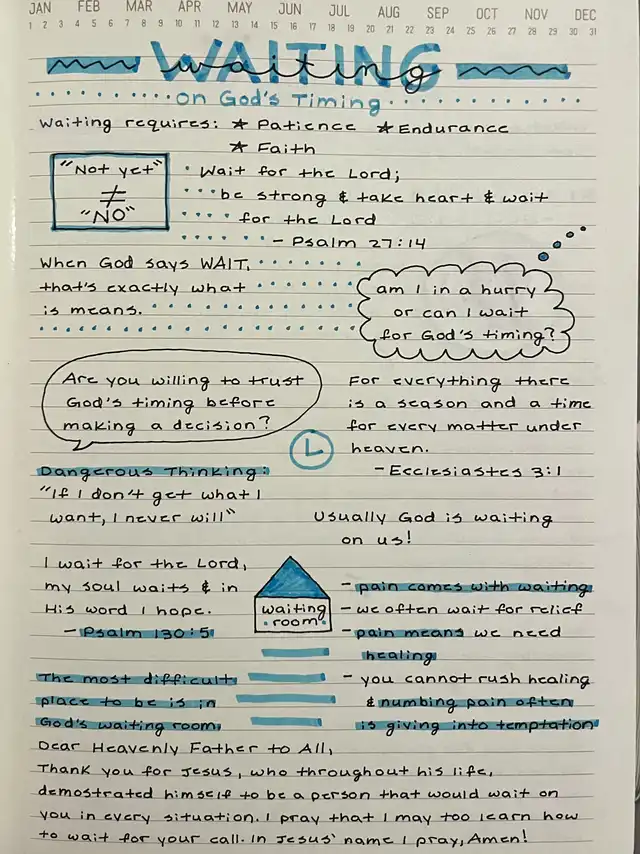 JAN FEB MAR APR MAY JUN JUL AUG SEP OCT NOV DEC
1 2 3 4 5 6 7 8 9 10 11 12 13 14 15 16 17 18 19 20 21 22 23 24 25 26 27 28 29 30 31
WAITING
waiting
on God's Timing
Waiting requires: ★ Patience ★ Endurance
★ Faith
"Not yet"
≠
"NO"
Wait for the Lord;
be strong & take heart & wait
for the Lord
- Psalm 27:14
When God says WAIT,
that's exactly what
is means.
am I in a hurry
or can I wait
for God's timing?
Are you willing to trust
God's timing before
making a decision?
For everything there
is a season and a time
for every matter under
heaven.
- Ecclesiastes 3:1
Dangerous Thinking:
"If I don't get what I
want, I never will"
Usually God is waiting
on us!
I wait for the Lord,
my soul waits & in
His word I hope.
- Psalm 130:5
waiting
room
- pain comes with waiting
- we often wait for relief
- pain means we need
healing
- you cannot rush healing
& numbing pain often
is giving into temptation
The most difficult
place to be is in
God's waiting room.
Dear Heavenly Father to All,
Thank you for Jesus, who throughout his life,
demostrated himself to be a person that would wait on
you in every situation. I pray that I may too learn how
to wait for your call. In Jesus' name I pray, Amen!